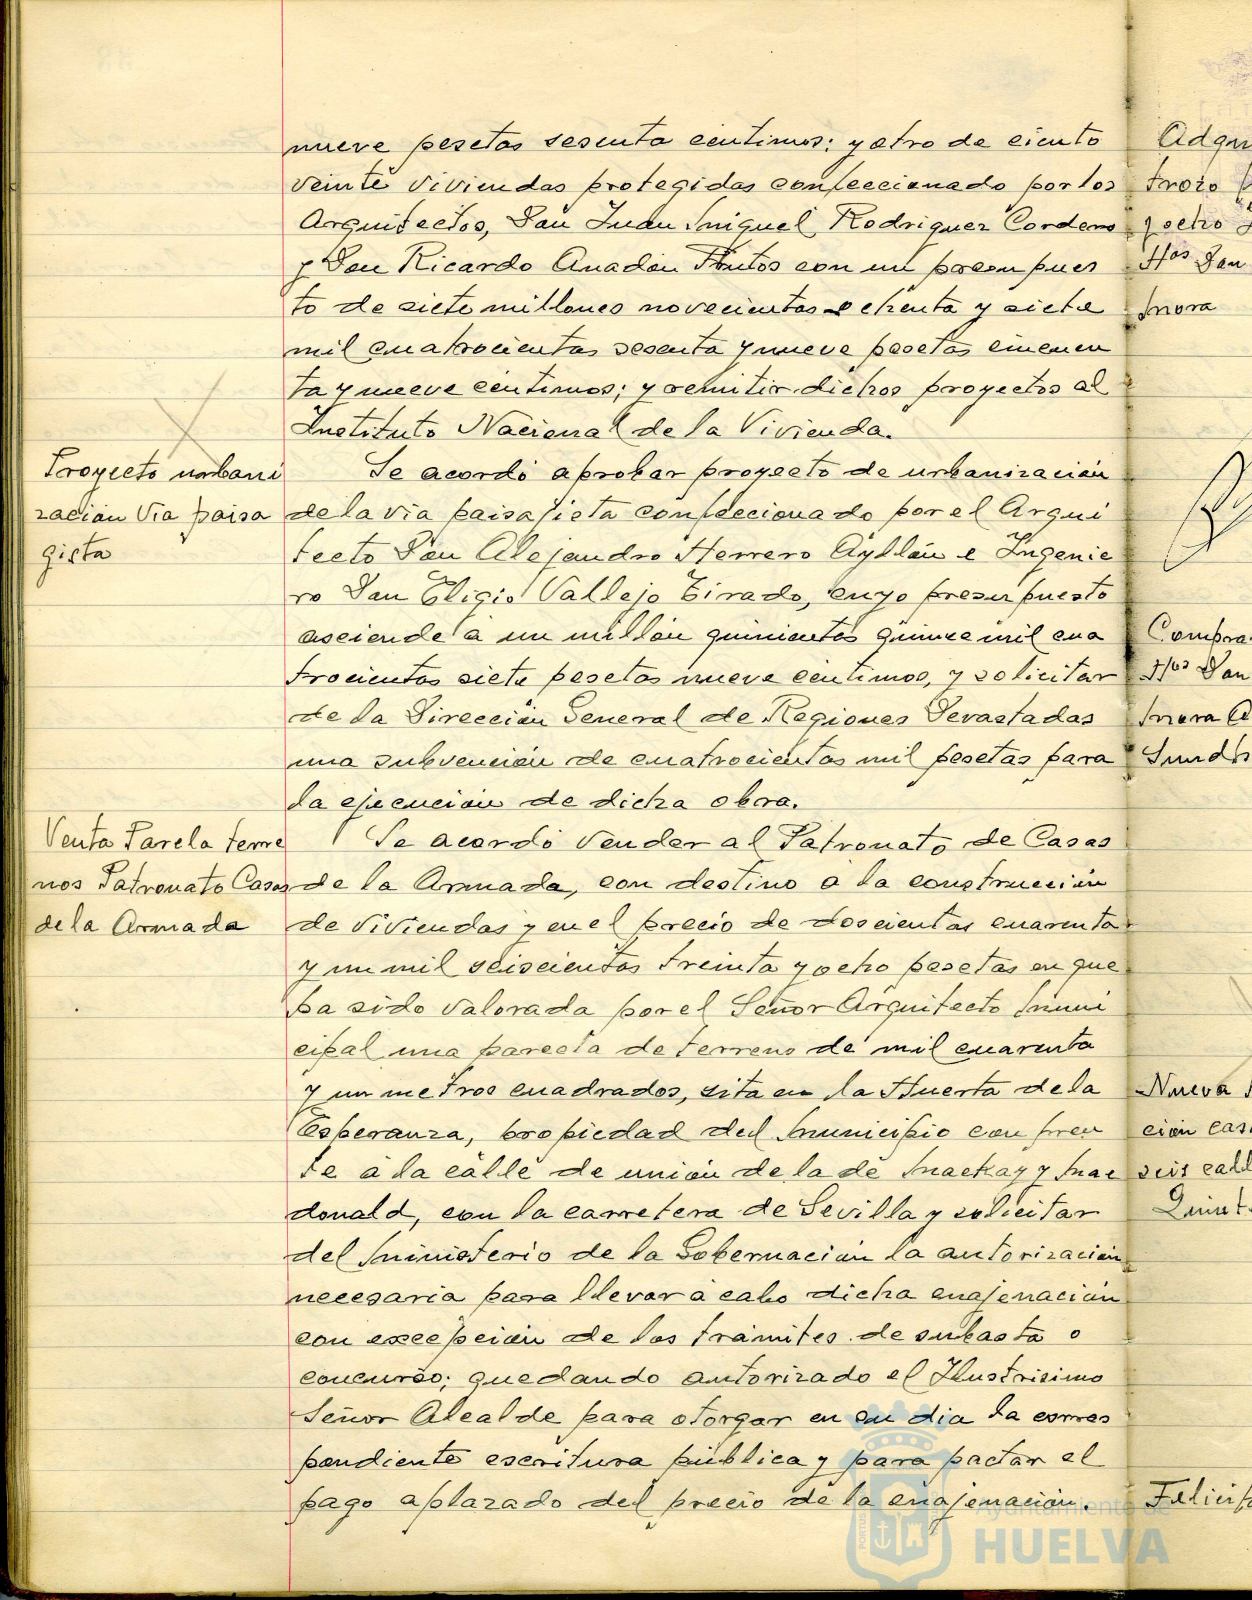 nueve pesetas sesenta centimos; y otro de ciento
veinte viviendas protegidas confeccionado por los
Arquitectos, Don Juan Miguel Rodriguez Cordero
y Don Ricardo Anadón Frutos con un presupues
to de siete millones novecientas ochenta y siete
mil cuatrocientas sesenta y nueve pesetas cincuen
ta y nueve centimos; y remitir dichos proyectos al
Instituto Nacional de la Vivienda.
Proyecto urbani
zación Via paisa
gista
Se acordó aprobar proyecto de urbanización
de la via paisajista confeccionado por el Arqui
tecto Don Alejandro Herrero Ayllón e Ingenie
ro Don Eligio Vallejo Tirado, cuyo presupuesto
asciende a un millón quinientas quince mil cua
trocientas siete pesetas nueve centimos, y solicitar
de la Dirección General de Regiones Devastadas
una subvención de cuatrocientas mil pesetas para
la ejecución de dicha obra.
Venta Parela terre
nos Patronato Casas
de la Armada
Se acordó vender al Patronato de Casas
de la Armada, con destino a la construcción
de viviendas y en el precio de doscientas cuarenta
y un mil seiscientas treinta y ocho pesetas en que
ha sido valorada por el Señor Arquitecto Muni
cipal una parcela de terreno de mil cuarenta
y un metros cuadrados, sita en la Huerta de la
Esperanza, propiedad del Municipio con fren
te á la calle de unión de la de Mackay y Mac
donald, con la carretera de Sevilla y solicitar
del Ministerio de la Gobernación la autorización
necesaria para llevar á cabo dicha enajenación
con excepción de los trámites de subasta o
concurso; quedando autorizado el Ilustrisimo
Señor Alcalde para otorgar en su dia la corres
pondiente escritura pública y para pactar el
pago aplazado del precio de la enajenación.
trozo
y ocho
Hos San
Mora
Compra
Hos San
Mora
Nueva
ción cas
seis call
Ayuntamiento de
HUELVA